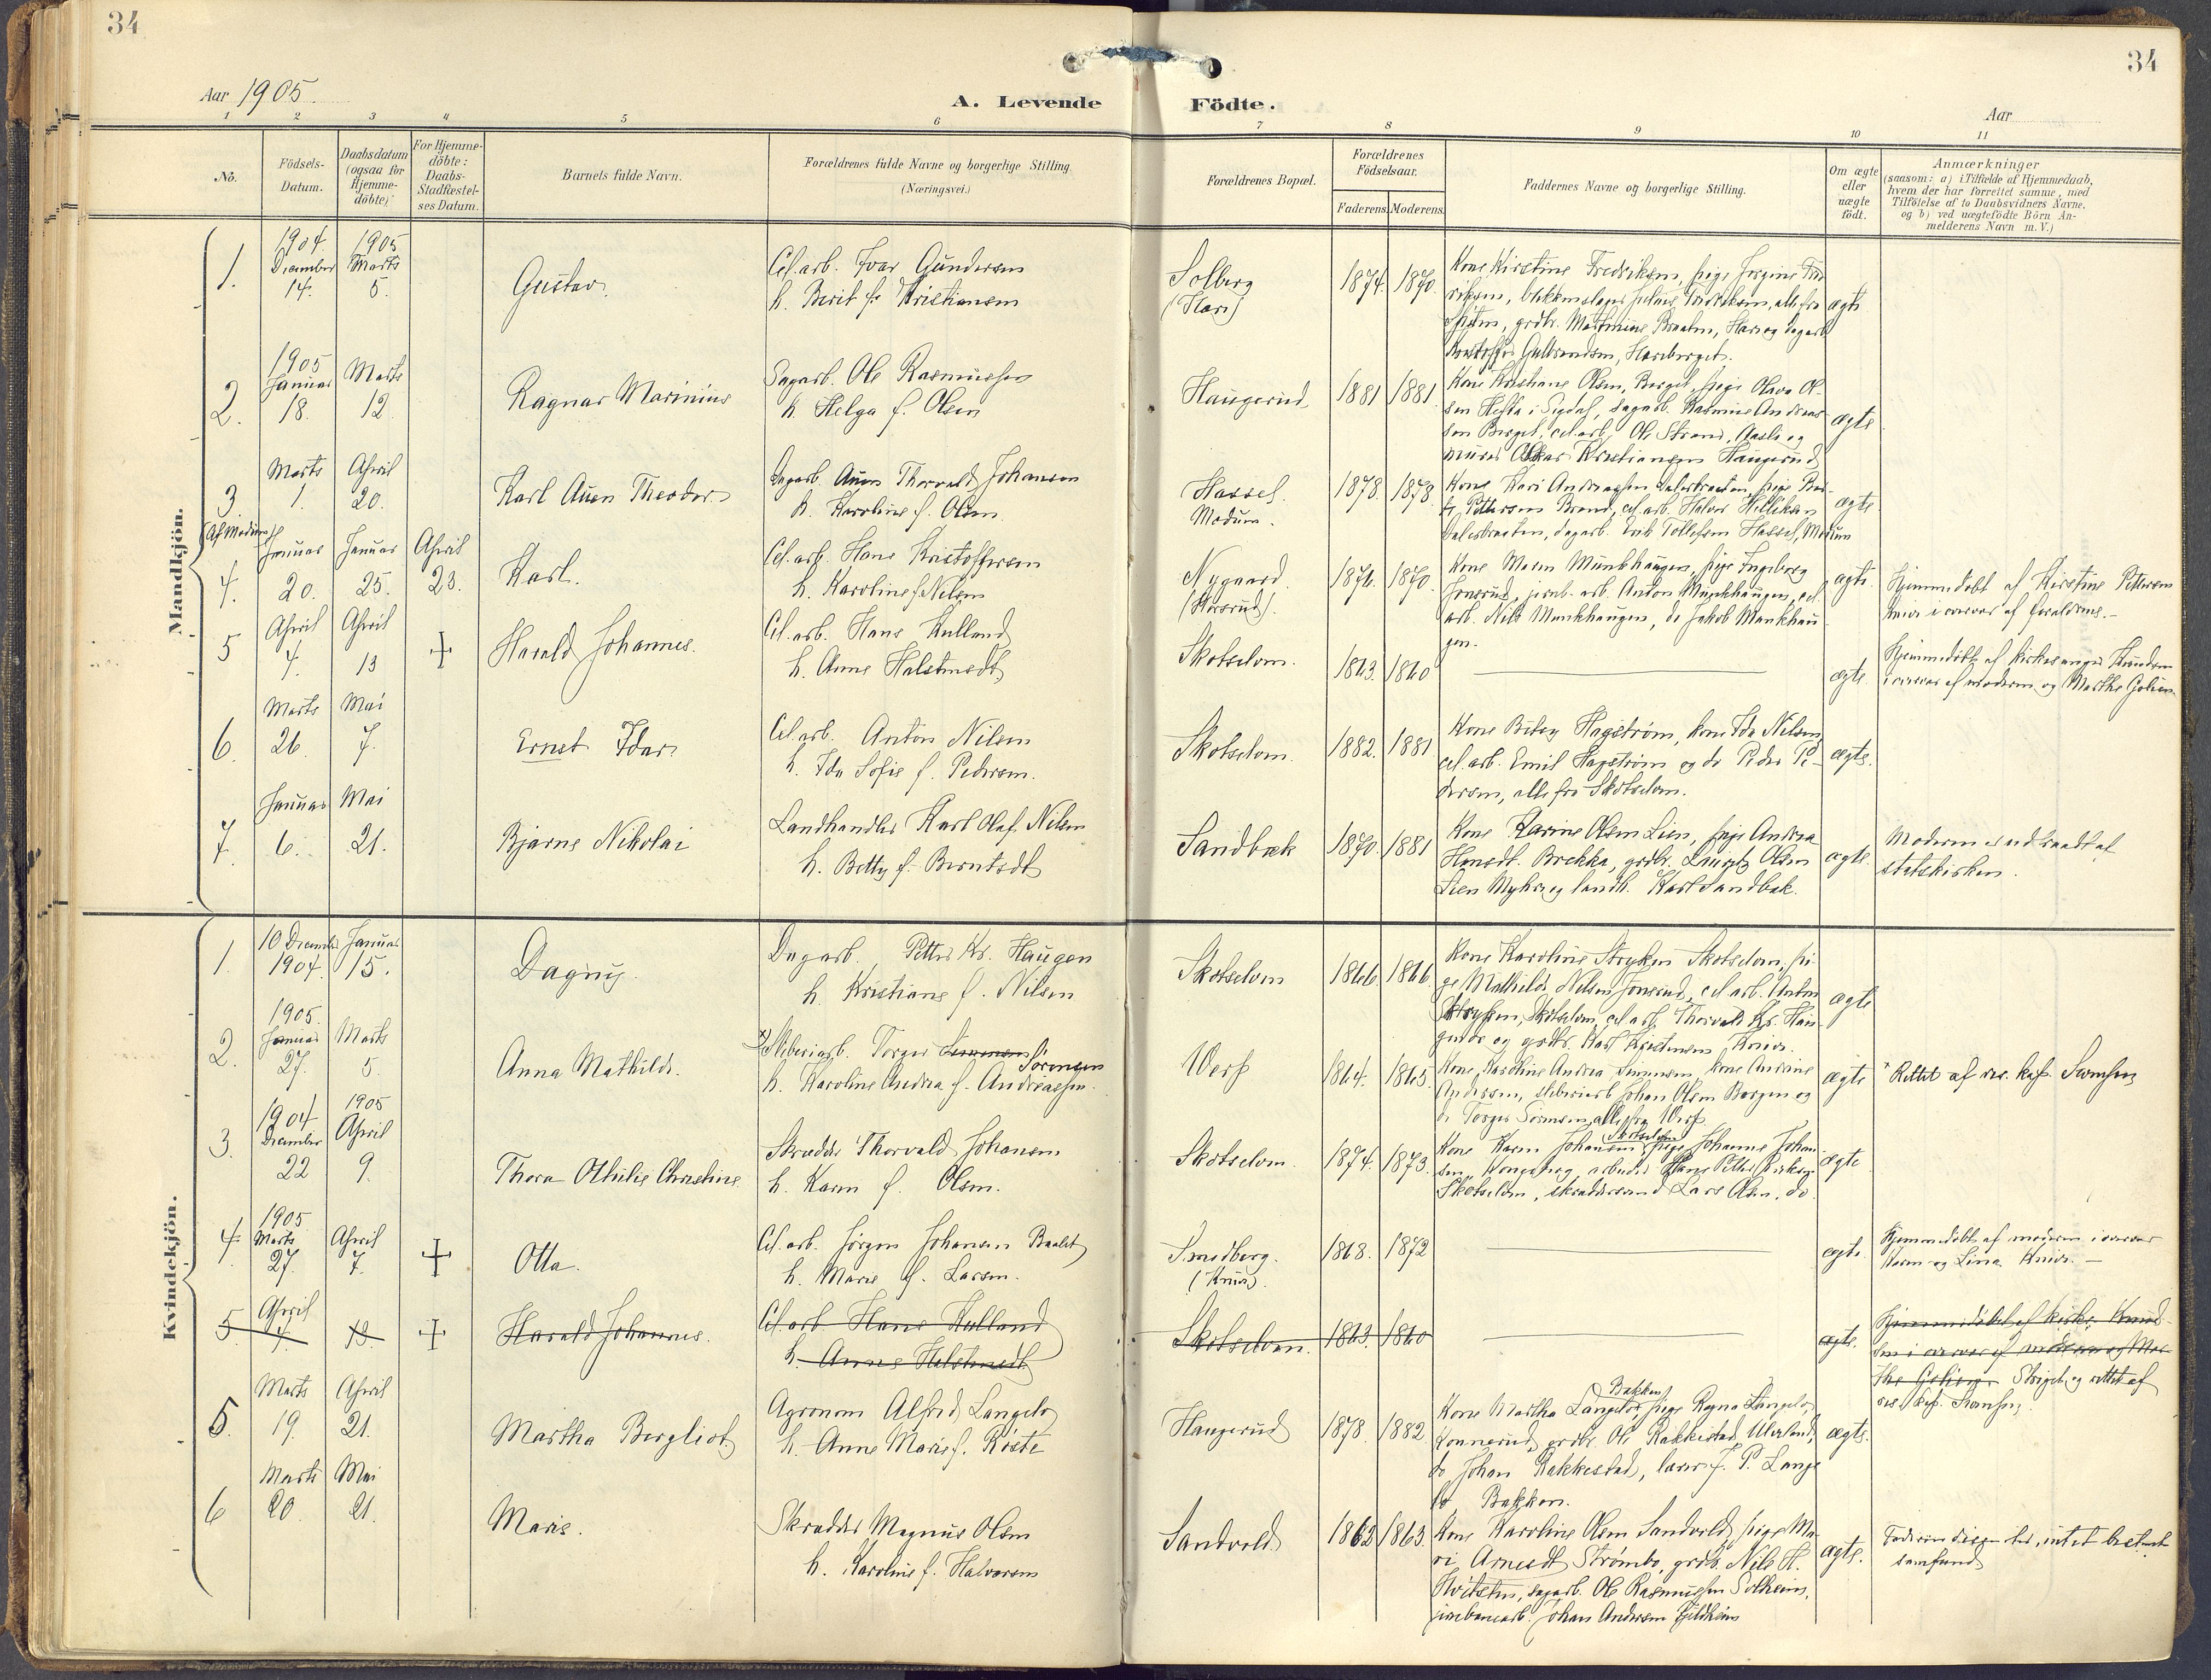 34
34
Aar 1905.
A. Levende
Födte.
Aar
1 2 3 4 5 6 7 8 9 10 11
No.
Födsels-
Datum.
Daabsdatum
(ogsaa for
Hjemme-
döbte)
For Hjemme-
döbte:
Daabs-
Stadfæstel-
ses Datum.
Barnets fulde Navn.
Forældrenes fulde Navne og borgerlige Stilling
(Næringsvei.)
Forældrenes Bopæl.
Forældrenes
Födselsaar.
Faderens. Moderens.
Faddernes Navne og borgerlige Stilling.
Om ægte
eller
uægte
födt.
Anmærkninger
(saasom: a) i Tilfælde af Hjemmedaab,
hvem der har forrettet samme, med
Tilföielse af to Daabsvidners Navne,
og b) ved uægtefödte Börn An-
melderens Navn m. V.)
Mandkjön.
1.
1904. December 14.
1905 Marts 5.
Gustav.
Cel.arb. Ivar Gundersen
h. Berit f. Kristiansen
Solberg
(Hære)
1874. 1870.
Kone Kirstine Fredriksen, pige Jorgine Fred-
riksen, blikkenslager
grdbr. Braaten,
Gulbrandsen,
ægte
2.
1905 Januar 18.
Marts 12.
Ragnar Marinius
Dagarb. Ole Rasmussen
h. Helga f. Olsen
Haugerud
1881 1881
Kone Kristiane Olsen, Berget, pige Olava Ol-
sen Hefta i Sigdal, dagarb. Rasmus Andreas-
sen Berget, cel.arb. Ole Strand, Aasli og
murer Oskar Kristiansen Haugerud
ægte
3
Marts 1.
April 20.
Karl Auen Theodor
Dagarb. Auen Thorvald Johansen
h. Karoline f. Olsen.
Hassel.
Modum.
1878. 1878
Kone Kari Andreassen Dalesbraaten, pige
Pettersen Brand, cel.arb. Halvor Helliksen
Dalesbraaten, dagarb. Erik Tollefsen Hassel, Modum
ægte
(Af Modum)
4.
Januar 20.
Januar 25.
April 23.
Karl.
Cel.arb. Hans Kristoffersen
h. Karoline f. Nilsen
Nygaard.
(Horsrud).
1876. 1870.
Kone Maren Munkhaugen, pige Ingeborg
Jonsrud, jernb.arb. Anton Munkhaugen, cel.
arb. Nils Munkhaugen, do Jakob Munkhau-
gen.
ægte.
Hjemmedøbt af Kirstine Pettersen
Kniv i overvær af forældrene.-
5
April 4.
April 13
+
Harald Johannes.
Cel.arb. Hans Hulland
h. Anne Halstensdt.
Skotselven.
1863. 1860
ægte.
Hjemmedøbt af kirkesanger Knudsen
i overvær af moderen og Marthe
6.
Marts 26.
Mai 7.
Ernst Idar.
Cel.arb. Anton Nilsen
h. Ida Sofie f. Pedersen.
Skotselven.
1882. 1881
Kone Betsy Hagstrøm, kone Ida Nilsen,
cel.arb. Emil Hagstrøm og do Peder Pe-
dersen, alle fra Skotselven.
ægte.
7.
Januar 6.
Mai 21.
Bjarne Nikolai
Landhandler Karl Olaf Nilsen
h. Betty f. Berntsdt
Sandbæk
1870. 1881
Kone Karine Olsen Lien, pige Andrea
Hansdt. Brekka, grdbr. Lauritz Olsen
Lien Myhre og landh. Karl Sandbæk.
ægte.
Moderen er udtraadt af
statskirken.
Kvindekjön.
1.
10 December 1904.
Januar 15.
Dagny.
Dagarb. Petter Kr. Haugen
h. Kristiane f. Nilsen
Skotselven
1866. 1866.
Kone Karoline Stryken Skotselven, pi-
ge Mathilde Nilsen Jonsrud, cel.arb. Anton
Stryken, Skotselven, cel.arb. Thorvald Kr. Hau-
gen do og grdbr. Karl Kristensen Kniv.
ægte
2.
1905. Januar 27.
Marts 5.
Anna Mathilde.
x) Sliberiarb. Torger Simensen Sørensen
h. Karoline Andrea f. Andreassen.
Verp
1864. 1865.
Kone Karoline Andrea Simensen, kone Andrine
Andersen, sliberiarb Johan Olsen Borgen og
do Torger Sørensen, alle fra Verp
ægte
x Rettet af res. kap. Svensen
3.
1904 December 22
1905 April 9.
Thora Othilie Christine.
Skrædder Thorvald Johansen
h. Karen f. Olsen.
Skotselven.
1874. 1873.
Kone Karen Johansen Skotselven, pige Johanne Johan-
sen, Kongsberg, arbeider Hans Petter
Skotselven, skræddersvend Lars Olsen, do.
ægte
4.
1905. Marts 27.
April 7.
+
Otta.
Cel.arb. Jørgen Johansen
h. Marie f. Larsen.
Smedberg.
(Kniv).
1868. 1872
ægte.
Hjemmedøbt af moderen i overvær
Karen og Lina Kniv.-
5
April 4.
13.
+
Harald Johannes.
Cel.arb Hans Hulland
h. Anne Halstensdt.
Skotselven.
1863. 1860
ægte.
Hjemmedøbt af kirkes. Knud-
sen i overvær af moderen og Mar-
the Strøget og rettet af
res. kap. Svensen.
5.
Marts 19.
April 21.
Martha Bergliot
Agronom Alfred Langelo
h. Anne Marie f. Røste
Haugerud
1878. 1882
Kone Martha Langelo, Bakken pige Ragna Langelo,
Konnerud, grdbr. Ole Rakkestad Ulerland,
do Johan Rakkestad, lærer J. P. Lange-
lo Bakken.
ægte.
6
Marts 20
Mai 21.
Marie.
Skrædder Magnus Olsen
h. Karoline f. Halvorsen
Sandvold
1862 1863.
Kone Karoline Olsen Sandvold, pige Ma-
ri Arnesdt. Strømbo, grdbr. Nils H.
Hvitsten, dagarb. Ole Rasmussen Solheim,
jernbanearb. Johan Andersen Fjeldheim
ægte.
Faderen dissenter, intet bestemt
samfund